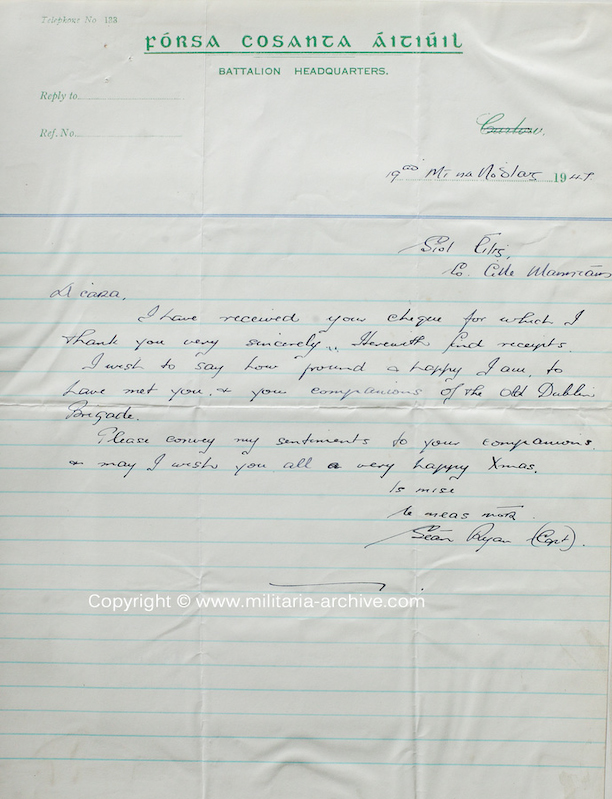 Telephone No 123
FÓRSA COSANTA ÁITIÚIL
BATTALION HEADQUARTERS.
Reply to
Ref. No
Carlow.
19ad Mí na Nodlag 1947.
Síol Éilig,
Co. Cille Manntáin
A cara,
I have received your cheque for which I
thank you very sincerely. Herewith find receipts.
I wish to say how proud & happy I am, to
have met you, & your companions of the old Dublin
Brigade.
Please convey my sentiments to your companions,
& may I wish you all a very happy Xmas.
Is mise
le meas mór
Seán Ryan (Capt).
Copyright © www.militaria-archive.com